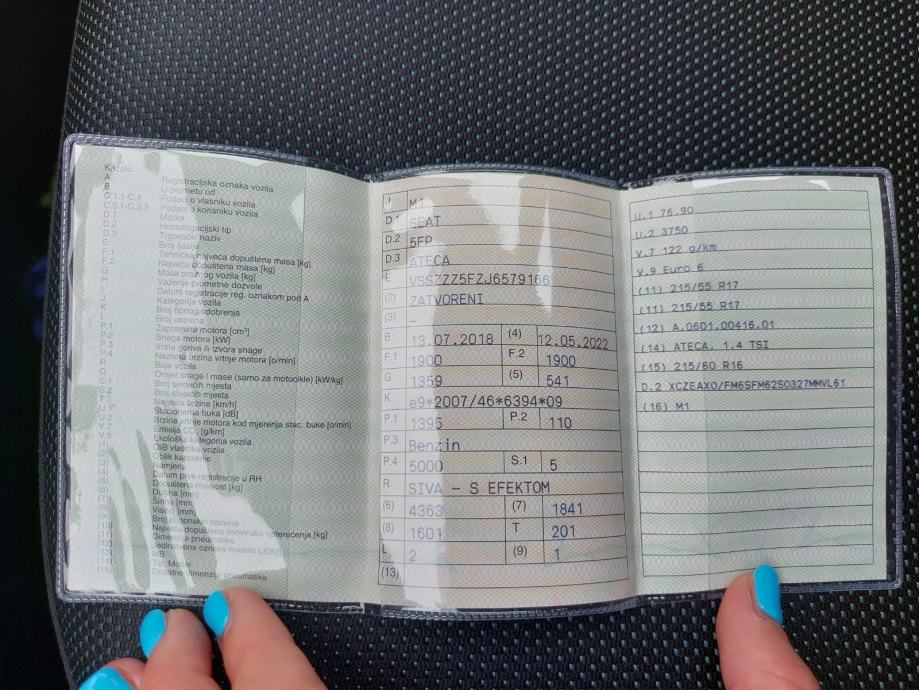 Kazalo:
A Registracijska oznaka vozila
B U prometu od
C.1.1-C.4 Podaci o vlasniku vozila
C.3.1-C.3.3 Podaci o korisniku vozila
D.1 Marka
D.2 Homologacijski tip
D.3 Trgovački naziv
E Broj šasije
F.1 Tehnička najveća dopuštena masa [kg]
F.2 Najveća dopuštena masa [kg]
G Masa praznog vozila [kg]
H Važenje prometne dozvole
I Datum registracije reg. oznakom pod A
J Kategorija vozila
K Broj tipnog odobrenja
L Broj osovina
P.1 Zapremina motora [cm³]
P.2 Snaga motora [kW]
P.3 Vrsta goriva ili izvora snage
P.4 Nazivna brzina vrtnje motora [o/min]
R Boja vozila
Q Omjer snage i mase (samo za motocikle) [kW/kg]
S.1 Broj sjedećih mjesta
S.2 Broj stajaćih mjesta
Najveća brzina [km/h]
U.1 Stacionarna buka [dB]
U.2 Brzina vrtnje motora kod mjerenja stac. buke [o/min]
V.7 Emisija CO₂ [g/km]
V.9 Ekološka kategorija vozila
(1) OIB vlasnika vozila
(2) Oblik karoserije
(3) Namjena
(4) Datum prve registracije u RH
(5) Dopuštena nosivost [kg]
(6) Dužina [mm]
(7) Širina [mm]
(8) Visina [mm]
(9) Broj pogonskih osovina
Najveće dopuštena osovinska opterećenja [kg]
(11) Dimenzija pneumatika
Jedinstvena oznaka modela (JOM)
(14) Tip Model
(15) Dodatne dimenzije pneumatika
J M1
D.1 SEAT
D.2 5FP
D.3 ATECA
E VSSZZZ5FZJ6579166
(2) ZATVORENI
(3) –
B 13.07.2018 (4) 12.05.2022
F.1 1900 F.2 1900
G 1359 (5) 541
K e9*2007/46*6394*09
P.1 1395 P.2 110
P.3 Benzin
P.4 5000 S.1 5
R SIVA - S EFEKTOM
(6) 4363 (7) 1841
(8) 1601 T 201
L 2 (9) 1
(13)
U.1 76.90
U.2 3750
V.7 122 g/km
V.9 Euro 6
(11) 215/55 R17
(11) 215/55 R17
(12) A.0601.00416.01
(14) ATECA, 1.4 TSI
(15) 215/60 R16
D.2 XCZEAX0/FM6SFM62S0327MMVL61
(16) M1